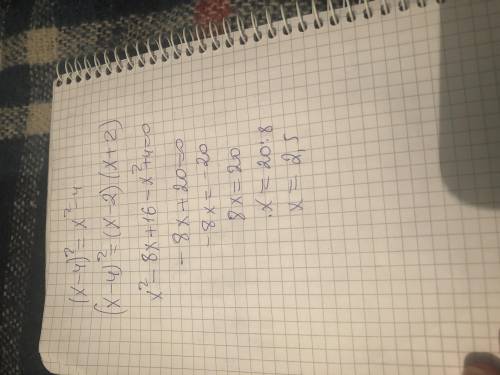 (x-4)² = x²-4
(x-4)² = (x-2)(x+2)
x²-8x+16-x²+4=0
-8x+20=0
-8x=-20
8x=20
x=20:8
x=2,5